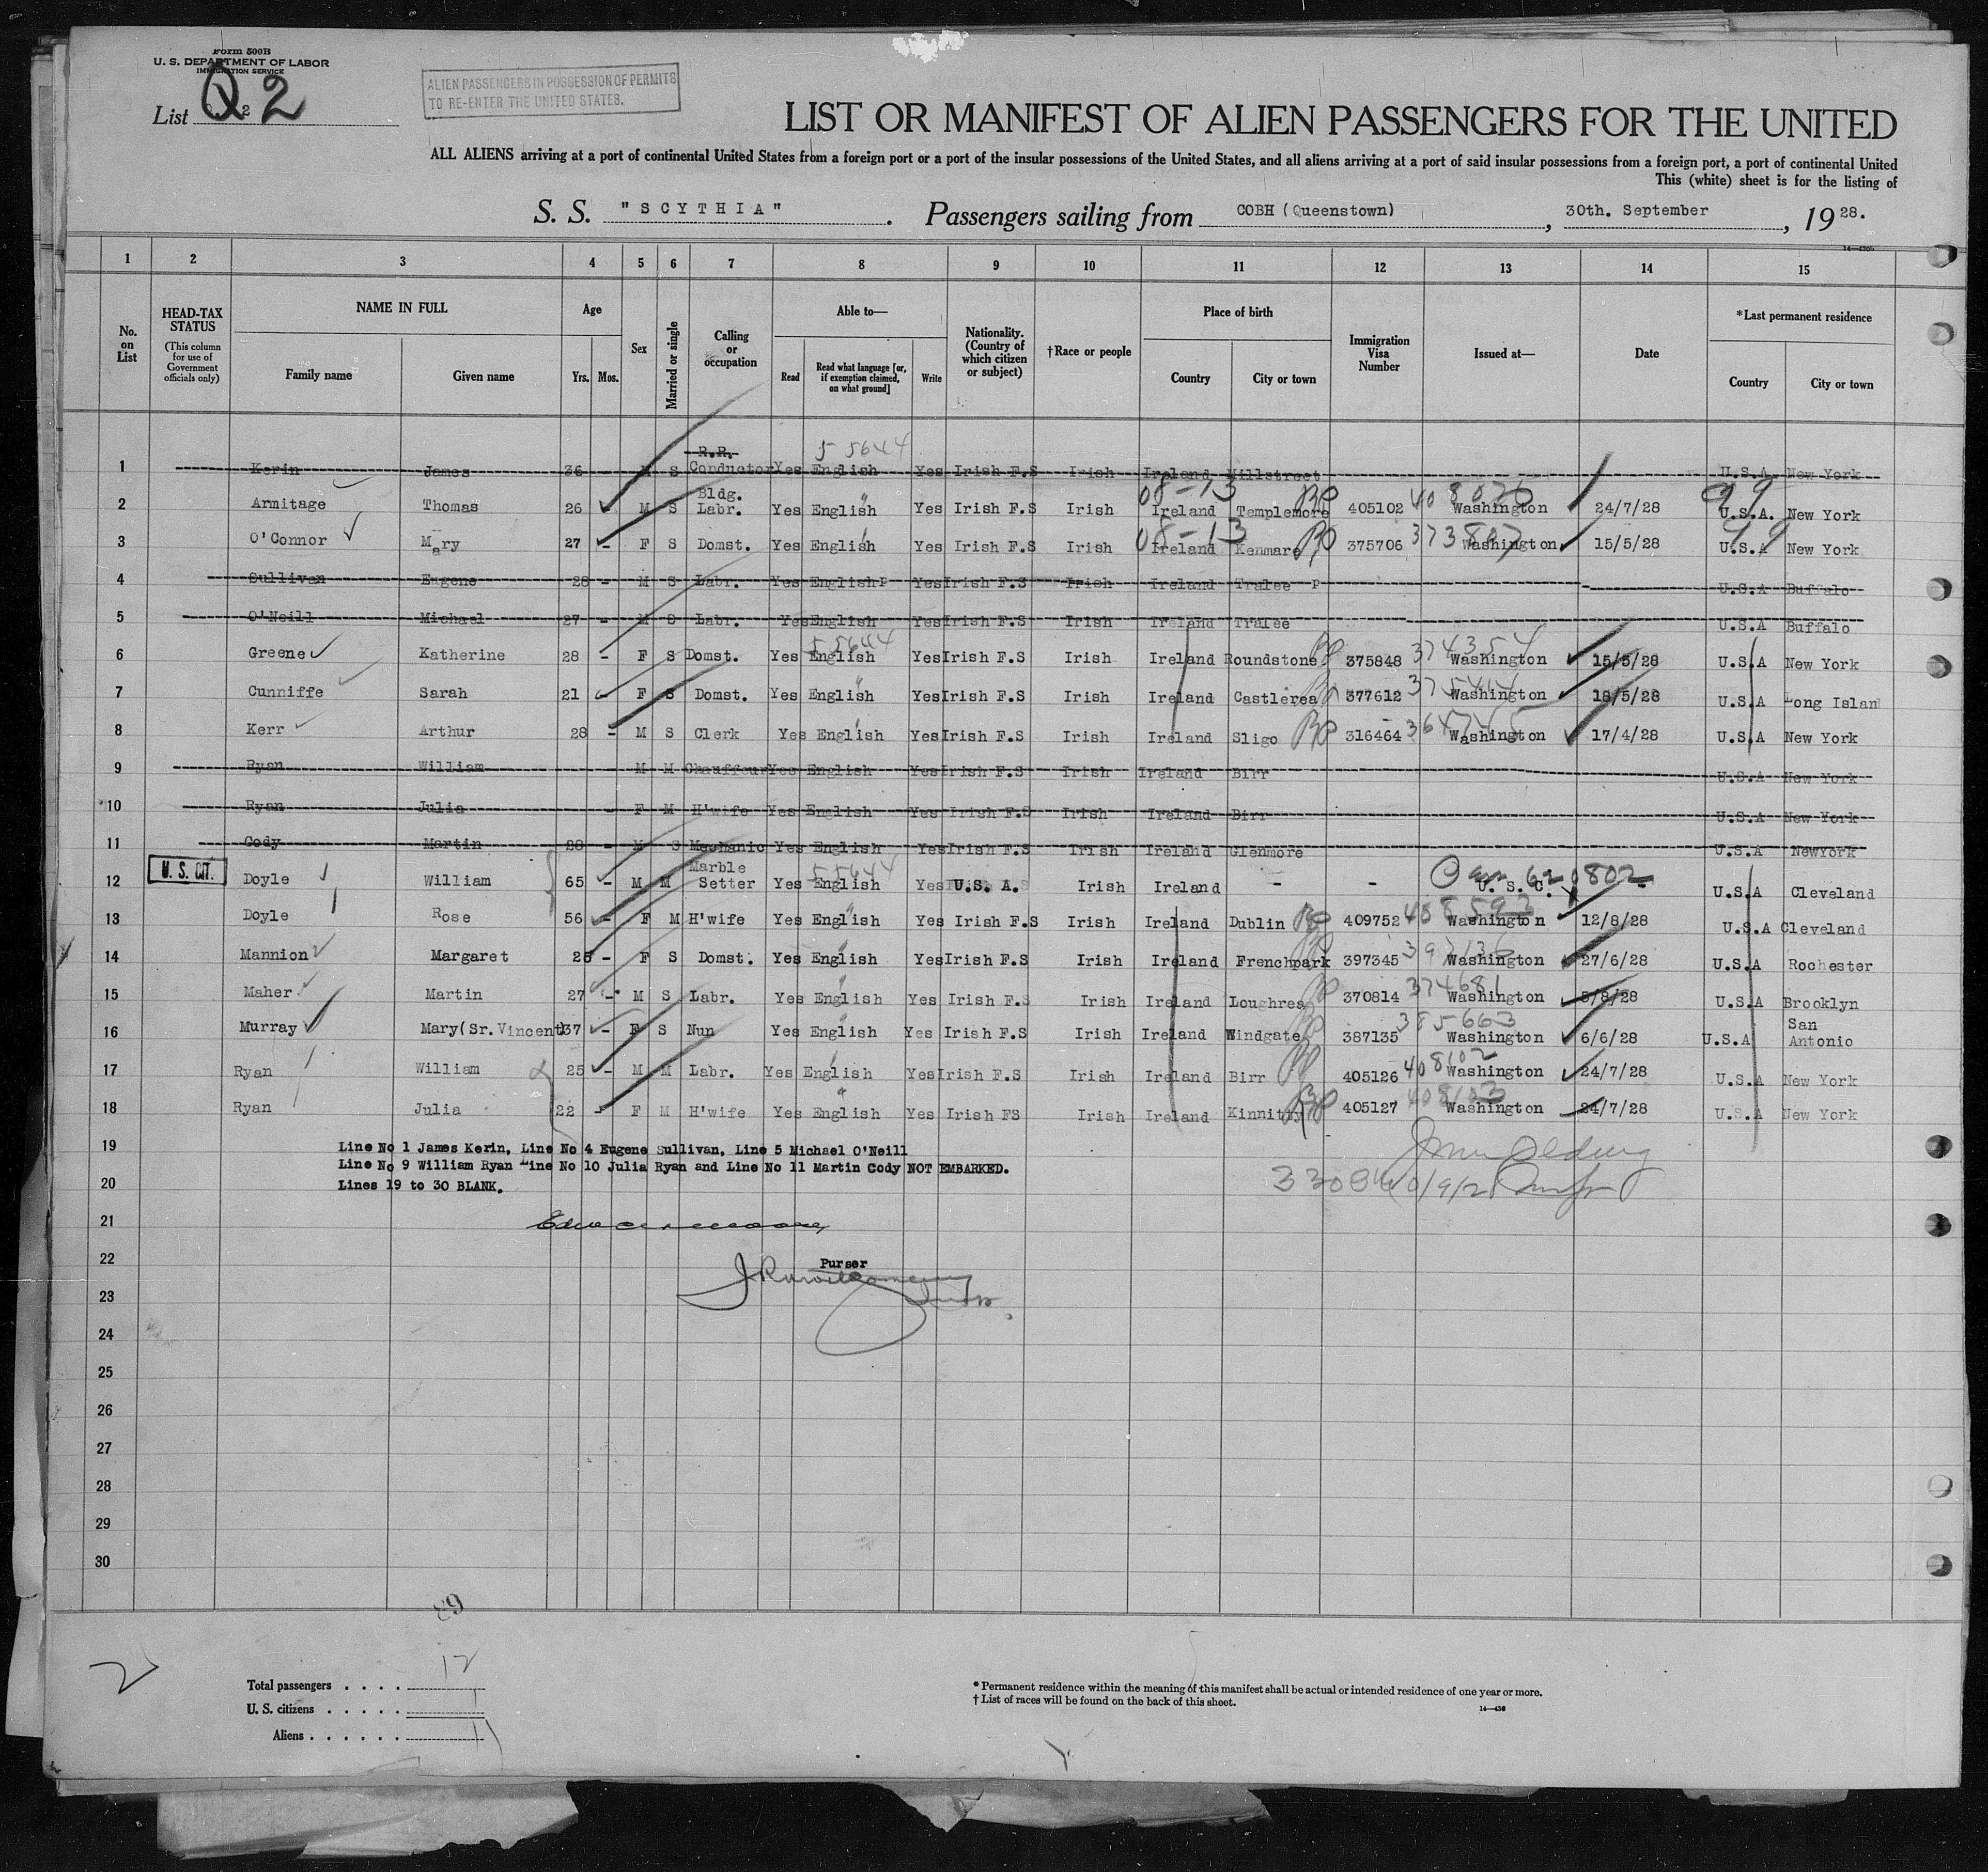 Form 500B
U. S. DEPARTMENT OF LABOR
IMMIGRATION SERVICE
List Q 2
ALIEN PASSENGERS IN POSSESSION OF PERMITS
TO RE-ENTER THE UNITED STATES.
LIST OR MANIFEST OF ALIEN PASSENGERS FOR THE UNITED
ALL ALIENS arriving at a port of continental United States from a foreign port or a port of the insular possessions of the United States, and all aliens arriving at a port of said insular possessions from a foreign port, a port of continental United
This (white) sheet is for the listing of
S. S. "SCYTHIA". Passengers sailing from COBH (Queenstown), 30th. September, 1928.
1 2 3 4 5 6 7 8 9 10 11 12 13 14 15
No. on List
HEAD-TAX STATUS
(This column for use of Government officials only)
NAME IN FULL
Family name Given name
Age
Yrs. Mos.
Sex
Married or single
Calling or occupation
Able to—
Read Read what language [or, if exemption claimed, on what ground] Write
Nationality. (Country of which citizen or subject)
†Race or people
Place of birth
Country City or town
Immigration Visa Number
Issued at—
Date
*Last permanent residence
Country City or town
55644
1 Kerin James 36 - M S R.R. Conductor Yes English Yes Irish F.S Irish Ireland Millstreet U.S.A New York
08-13 408026 99
2 Armitage Thomas 26 M S Bldg. Labr. Yes English Yes Irish F.S Irish Ireland Templemore 405102 Washington 24/7/28 U.S.A. New York
08-13 373807 99
3 O'Connor Mary 27 - F S Domst. Yes English Yes Irish F.S Irish Ireland Kenmare 375706 Washington 15/5/28 U.S.A New York
4 Sullivan Eugene 28 - M S Labr. Yes English Yes Irish F.S Irish Ireland Tralee U.S.A Buffalo
5 O'Neill Michael 27 - M S Labr. Yes English Yes Irish F.S Irish Ireland Tralee U.S.A Buffalo
55644 374354
6 Greene Katherine 28 - F S Domst. Yes English Yes Irish F.S Irish Ireland Roundstone 375848 Washington 15/5/28 U.S.A New York
7 Cunniffe Sarah 21 - F S Domst. Yes English Yes Irish F.S Irish Ireland Castlerea 377612 Washington 18/5/28 U.S.A Long Islan
8 Kerr Arthur 28 - M S Clerk Yes English Yes Irish F.S Irish Ireland Sligo 316464 Washington 17/4/28 U.S.A New York
9 Ryan William M M Chauffeur Yes English Yes Irish F.S Irish Ireland Birr U.S.A New York
10 Ryan Julia - F M H'wife Yes English Yes Irish F.S Irish Ireland Birr U.S.A New York
11 Cody Martin 28 - M S Mechanic Yes English Yes Irish F.S Irish Ireland Glenmore U.S.A NewYork
U. S. CIT.
55644 620802
12 Doyle William 65 - M M Marble Setter Yes English Yes U.S. A. Irish Ireland - - U. S. C. - U.S.A Cleveland
408593
13 Doyle Rose 56 - F M H'wife Yes English Yes Irish F.S Irish Ireland Dublin 409752 Washington 12/8/28 U.S.A Cleveland
397136
14 Mannion Margaret 25 - F S Domst. Yes English Yes Irish F.S Irish Ireland Frenchpark 397345 Washington 27/6/28 U.S.A Rochester
374681
15 Maher Martin 27 - M S Labr. Yes English Yes Irish F.S Irish Ireland Loughrea 370814 Washington 5/8/28 U.S.A Brooklyn
385663
16 Murray Mary(Sr.Vincent) 37 - F S Nun Yes English Yes Irish F.S Irish Ireland Windgate 387135 Washington 6/6/28 U.S.A San Antonio
408102
17 Ryan William 25 - M M Labr. Yes English Yes Irish F.S Irish Ireland Birr 405126 Washington 24/7/28 U.S.A New York
408103
18 Ryan Julia 22 - F M H'wife Yes English Yes Irish FS Irish Ireland Kinnitty 405127 Washington 24/7/28 U.S.A New York
19
Line No 1 James Kerin, Line No 4 Eugene Sullivan, Line 5 Michael O'Neill
Line No 9 William Ryan Line No 10 Julia Ryan and Line No 11 Martin Cody NOT EMBARKED.
20
Lines 19 to 30 BLANK.
21
22
Purser
23
24
25
26
27
28
29
30
89
2
Total passengers . . . . 12
U. S. citizens . . . . . 1
Aliens . . . . . . 11
* Permanent residence within the meaning of this manifest shall be actual or intended residence of one year or more.
† List of races will be found on the back of this sheet.
14—430